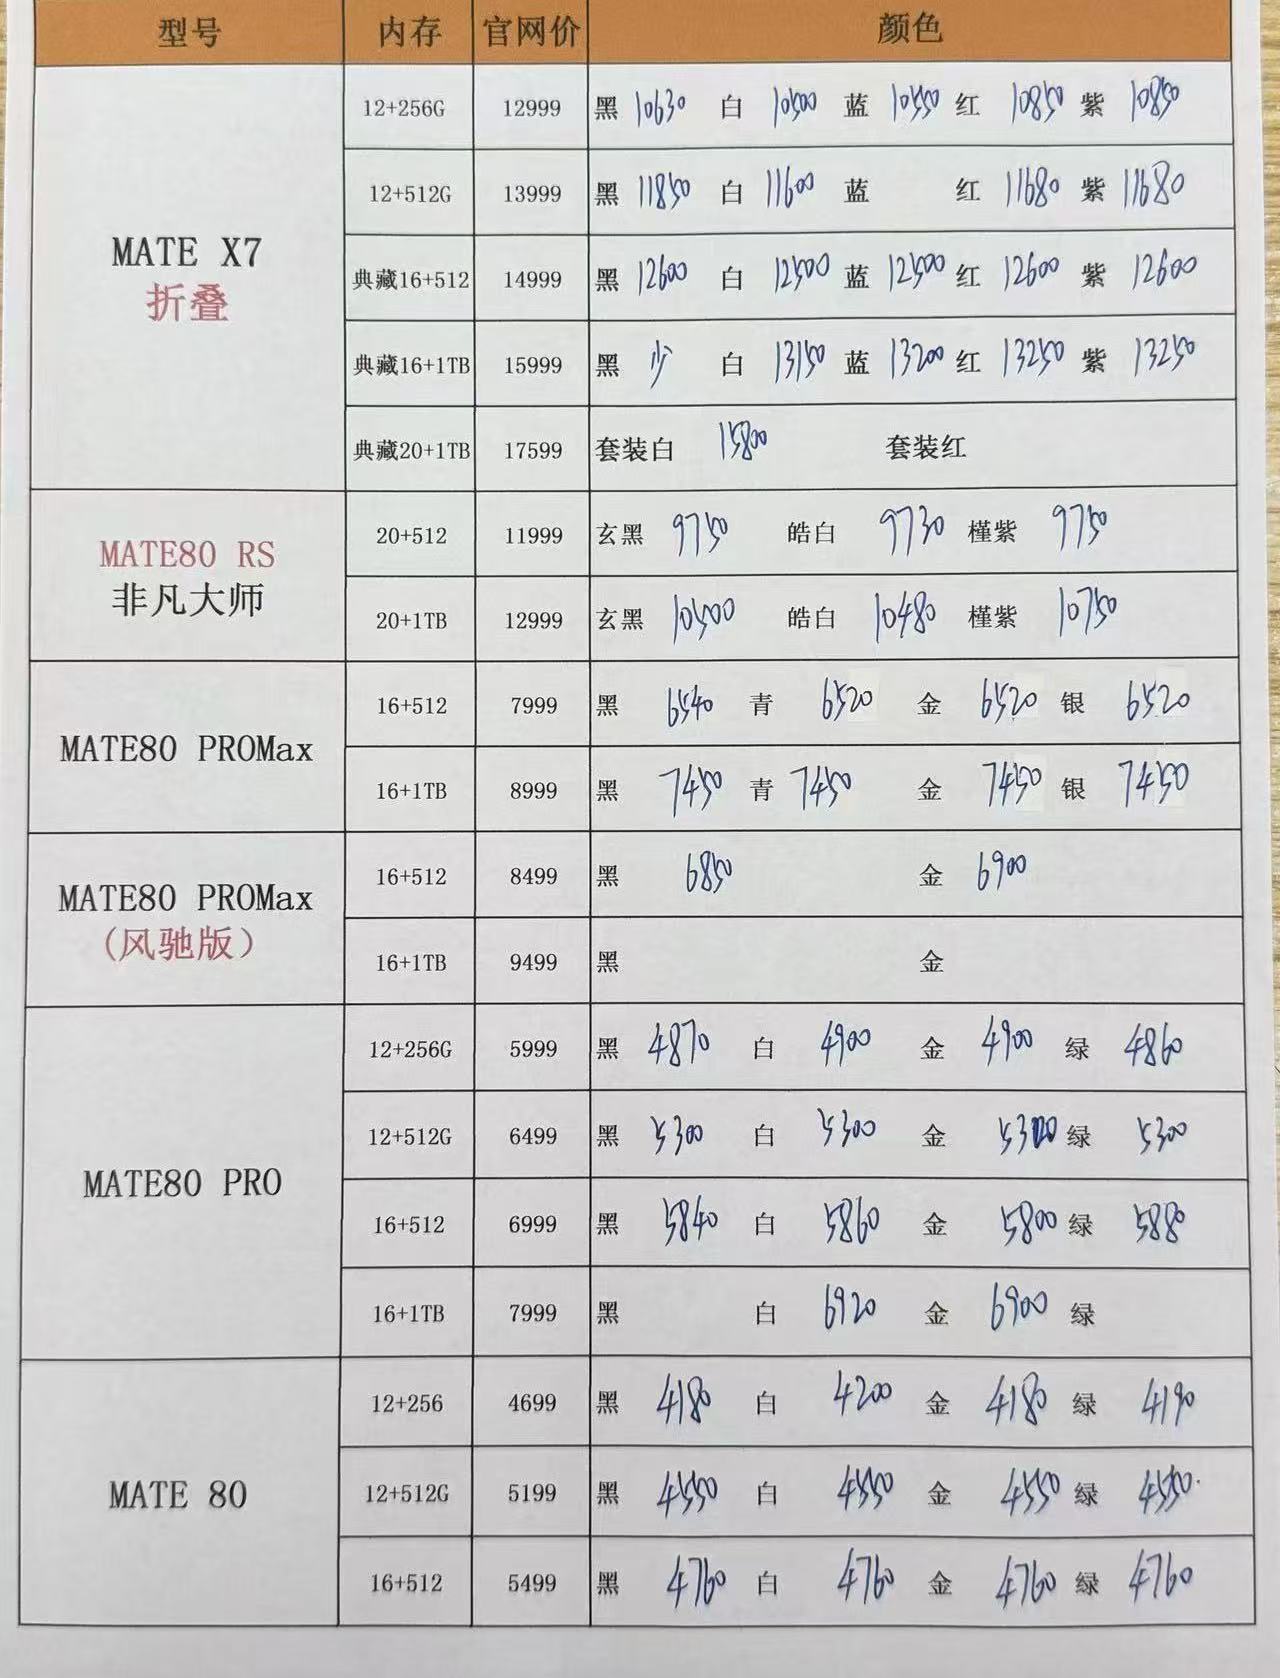 型号 内存 官网价 颜色
12+256G 12999 黑 10630 白 10500 蓝 10550 红 10850 紫 10850
12+512G 13999 黑 11850 白 11600 蓝 红 11680 紫 11680
MATE X7
折叠
典藏16+512 14999 黑 12600 白 12500 蓝 12500 红 12600 紫 12600
典藏16+1TB 15999 黑 少 白 13150 蓝 13200 红 13250 紫 13250
典藏20+1TB 17599 套装白 15800 套装红
MATE80 RS
非凡大师
20+512 11999 玄黑 9750 皓白 9730 槿紫 9750
20+1TB 12999 玄黑 10500 皓白 10480 槿紫 10750
MATE80 PROMax
16+512 7999 黑 6540 青 6520 金 6520 银 6520
16+1TB 8999 黑 7450 青 7450 金 7450 银 7450
MATE80 PROMax
(风驰版)
16+512 8499 黑 6850 金 6900
16+1TB 9499 黑 金
MATE80 PRO
12+256G 5999 黑 4870 白 4900 金 4900 绿 4860
12+512G 6499 黑 5300 白 5300 金 绿 5300
16+512 6999 黑 5840 白 5860 金 5800 绿 5880
16+1TB 7999 黑 白 6920 金 6900 绿
MATE 80
12+256 4699 黑 4180 白 4200 金 4180 绿 4190
12+512G 5199 黑 4550 白 4550 金 4550 绿 4550
16+512 5499 黑 4760 白 4760 金 4760 绿 4760